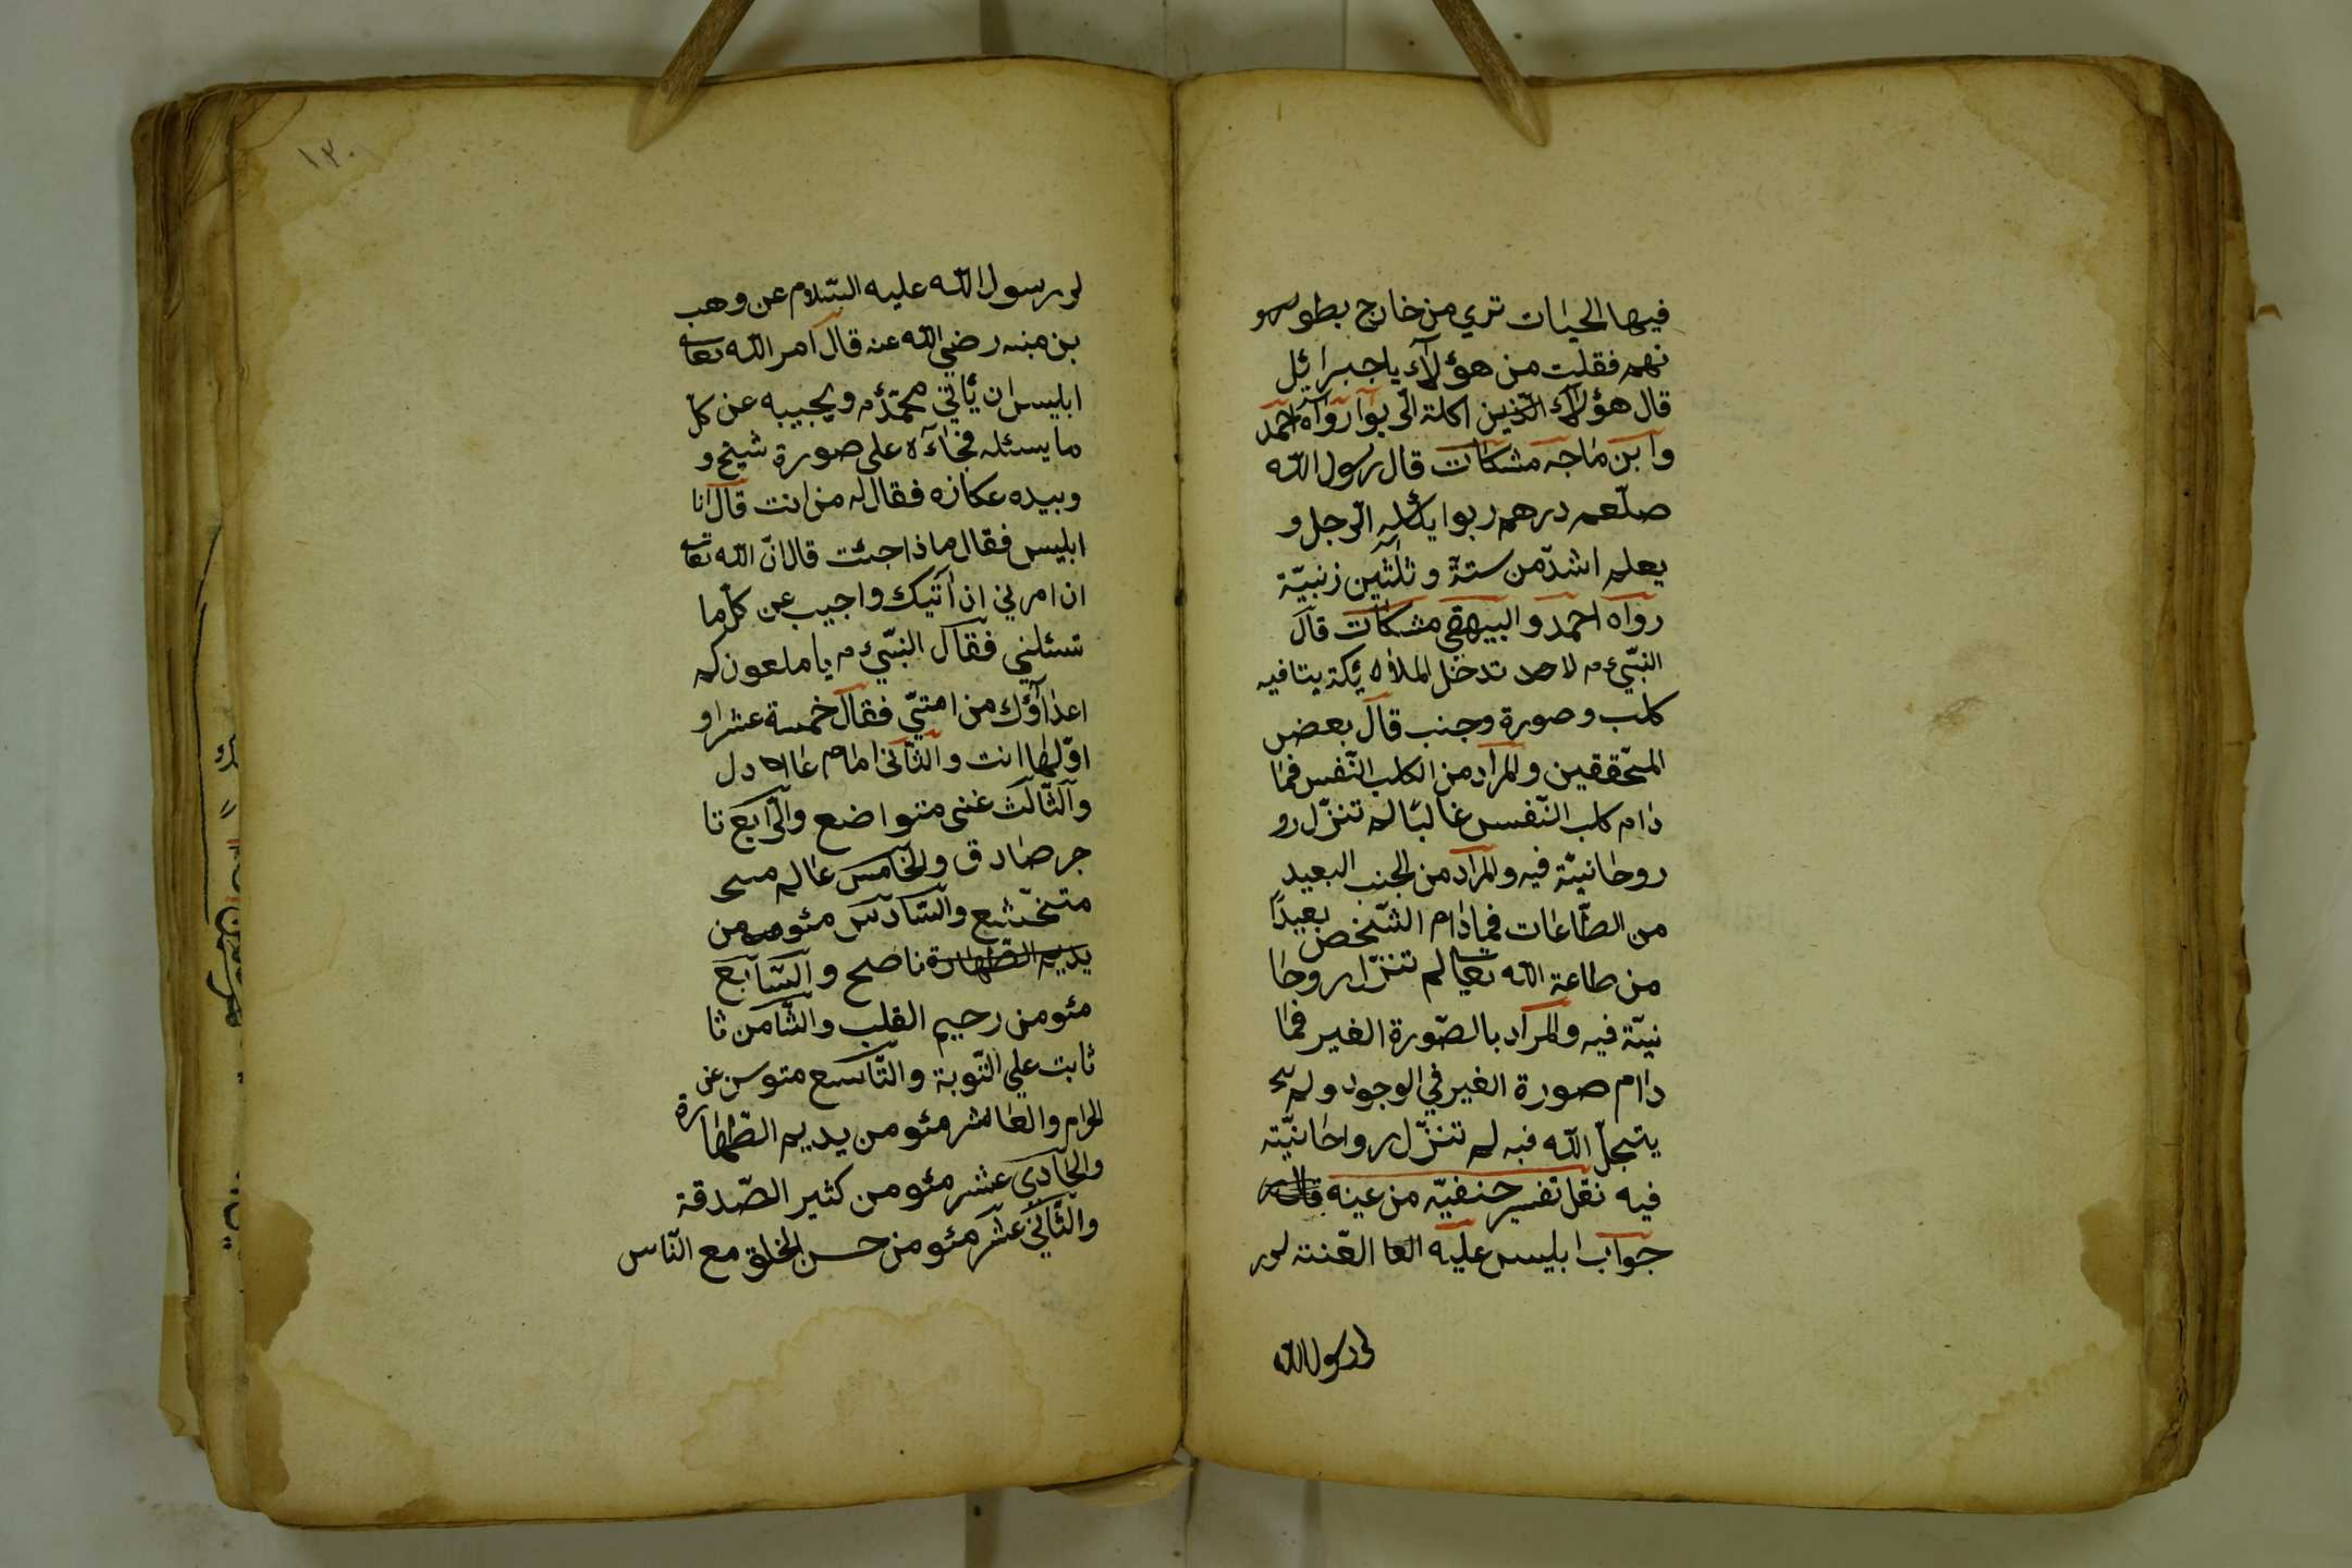 فيها الحيات تري من خارج بطو
نهم فقلت من هؤلآء ياجبرائيل
قال هؤلآء الّذين اكلة الرّبوا رواه احمد
وابن ماجه مشكات قال رسول الله
صلّعم درهم ربوا يأكله الرّجل و
يعلم اشدّ من ستة وثلثين زنبيّة
رواه احمد والبيهقي مشكات قال
النّبيّ ءم لا تدخل الملاء ئكة بيتا فيه
كلب وصورة وجنب قال بعض
المتحققين والمراد من الكلب النّفس فما
دام كلب النّفس غالبًا لم تنزّل رو
روحانيّة فيه والمراد من الجنب البعيد
من الطّاعات فمادام الشّخص بعيدًا
من طاعة الله تعالم تنزّل روحا
نيّة فيه والمراد بالصّورة الغير فما
دام صورة الغير في الوجود ولم يتج
يتجلّ الله فيه لم تنزّل رواحانيّته
فيه نقل تفسير حنفيّه من عينه
جواب ابليس عليه العا العّنته لر
لر رسول الله
١٢٠
لر رسول الله عليه السّلام عن وهب
بن منبه رضي الله عنه قال امر الله تعا
ابليس ان يّأتي محمّدءم ويجيبه عن كلّ
ما يسئله فجاءه على صورة شيخ و
وبيده عكازه فقال له من انت قال انا
ابليس فقال ماذا جئت قال انّ الله تعا
ان امرني ان اتيك واجيب عن كلّ ما
تسئلني فقال النّبيّ ءم يا ملعون كم
اعدآؤك من امتيّ فقال خمسة عشر او
اوّلها انت والثّاني امام عا دل
والثّالث غني متواضع والرّابع تا
جر صادق والخامس عالم
متخشّع والسّادس مئومن
يديم الطّهارة ناصح والسّابع
مئومن رحيم القلب والثّامن ثا
ثابت علي التّوبة والتّاسع متوس عن
الحرام والعاشر مئومن يديم الطّهارة
والحادي عشر مئومن كثير الصّدقة
والثّاني عشر مئومن حسن الخلق مع النّاس